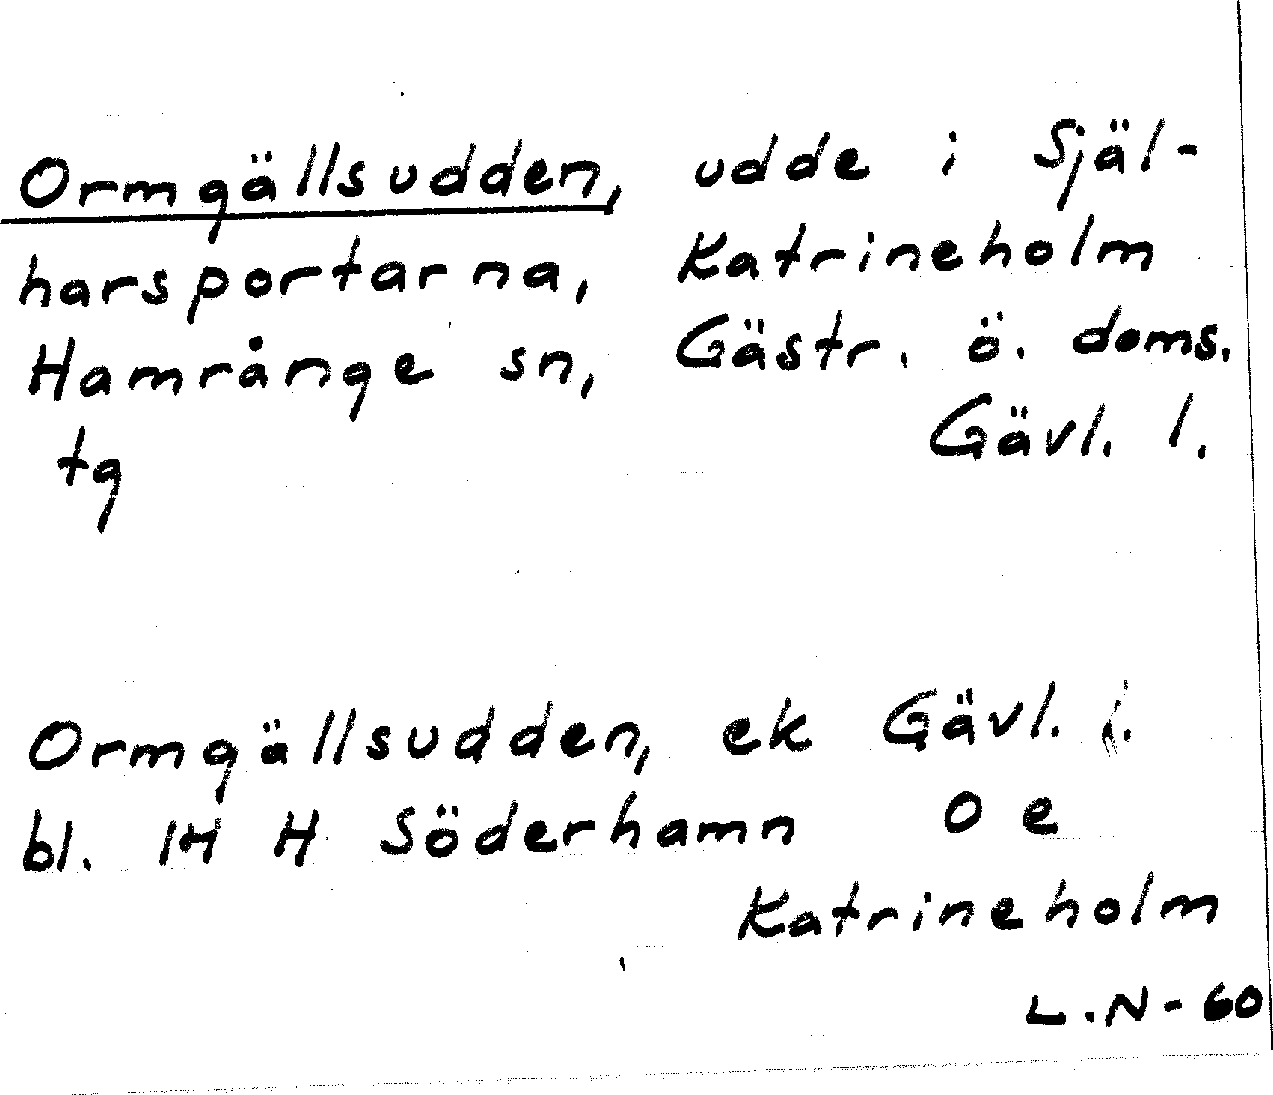 Ormgällsudden, udde i Själ-
harsportarna, Katrineholm
Hamrånge sn, Gästr. ö. doms.
tg Gävl. l.
Ormgällsudden, ek Gävl. l.
bl. 14 H Söderhamn 0 e
Katrineholm
L.N-60